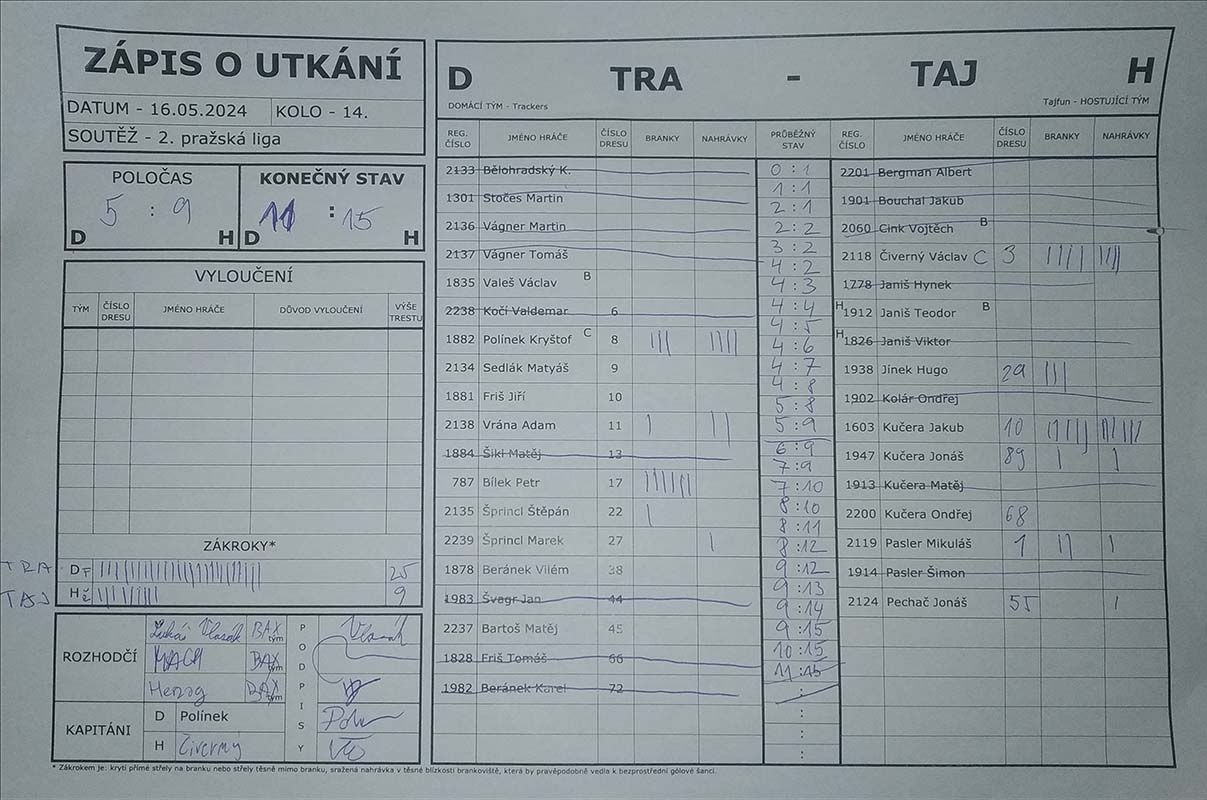 ZÁPIS O UTKÁNÍ
DATUM - 16.05.2024 KOLO - 14.
SOUTĚŽ - 2. pražská liga
POLOČAS KONEČNÝ STAV
5 : 9 11 : 15
D H D H
VYLOUČENÍ
TÝM ČÍSLO DRESU JMÉNO HRÁČE DŮVOD VYLOUČENÍ VÝŠE TRESTU
ZÁKROKY*
TRA D 25
TAJ H 9
ROZHODČÍ
Lukáš Vlasák BAX tým Vlasák
MACH BAX tým
Herzog BAX tým
PODPISY
KAPITÁNI
D Polínek
H Čiverný
D TRA - TAJ H
DOMÁCÍ TÝM - Trackers Tajfun - HOSTUJÍCÍ TÝM
REG. ČÍSLO JMÉNO HRÁČE ČÍSLO DRESU BRANKY NAHRÁVKY
2133 Bělohradský K.
1301 Stočes Martin
2136 Vágner Martin
2137 Vágner Tomáš
1835 Valeš Václav B
2238 Kočí Valdemar 6
1882 Polínek Kryštof C 8 ||| ||||
2134 Sedlák Matyáš 9
1881 Friš Jiří 10
2138 Vrána Adam 11 | ||
1884 Šikl Matěj 13
787 Bílek Petr 17 ||||||
2135 Šprincl Štěpán 22 |
2239 Šprincl Marek 27 |
1878 Beránek Vilém 38
1983 Švagr Jan 44
2237 Bartoš Matěj 45
1828 Friš Tomáš 66
1982 Beránek Karel 72
PRŮBĚŽNÝ STAV
0 : 1
1 : 1
2 : 1
2 : 2
3 : 2
4 : 2
4 : 3
4 : 4
4 : 5
4 : 6
4 : 7
4 : 8
5 : 8
5 : 9
6 : 9
7 : 9
7 : 10
8 : 10
8 : 11
8 : 12
9 : 12
9 : 13
9 : 14
9 : 15
10 : 15
11 : 15
:
:
:
:
REG. ČÍSLO JMÉNO HRÁČE ČÍSLO DRESU BRANKY NAHRÁVKY
2201 Bergman Albert
1901 Bouchal Jakub
2060 Cink Vojtěch B
2118 Čiverný Václav C 3 |||| ||||
1778 Janiš Hynek
H 1912 Janiš Teodor B
H 1826 Janiš Viktor
1938 Jínek Hugo 29 |||
1902 Kolár Ondřej
1603 Kučera Jakub 10
1947 Kučera Jonáš 89 | |
1913 Kučera Matěj
2200 Kučera Ondřej 68
2119 Pasler Mikuláš 1 || |
1914 Pasler Šimon
2124 Pechač Jonáš 55 |
* Zákrokem je: krytí přímé střely na branku nebo střely těsně mimo branku, sražená nahrávka v těsné blízkosti brankoviště, která by pravěpodobně vedla k bezprostřední gólové šanci.